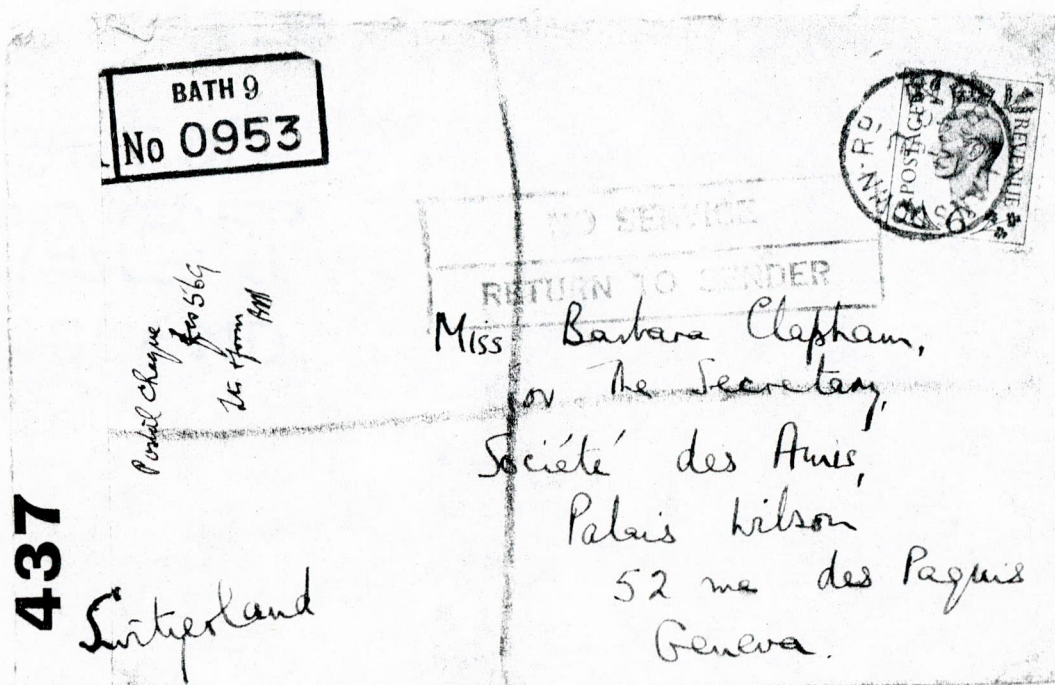 BATH 9
No 0953
POSTAGE
REVENUE
NO SERVICE
RETURN TO SENDER
Postal Cheque
for 569
Miss Barbara Clapham,
or The Secretary,
Société des Amis,
Palais Wilson
52 rue des Paquis
Geneva.
Switzerland
437